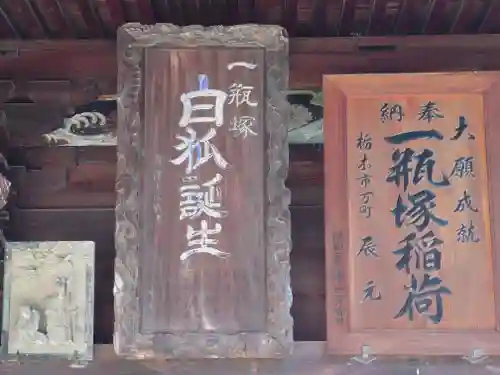 一瓶塚
白狐誕生
奉納
大願成就
一瓶塚稲荷
栃木市万町
辰元